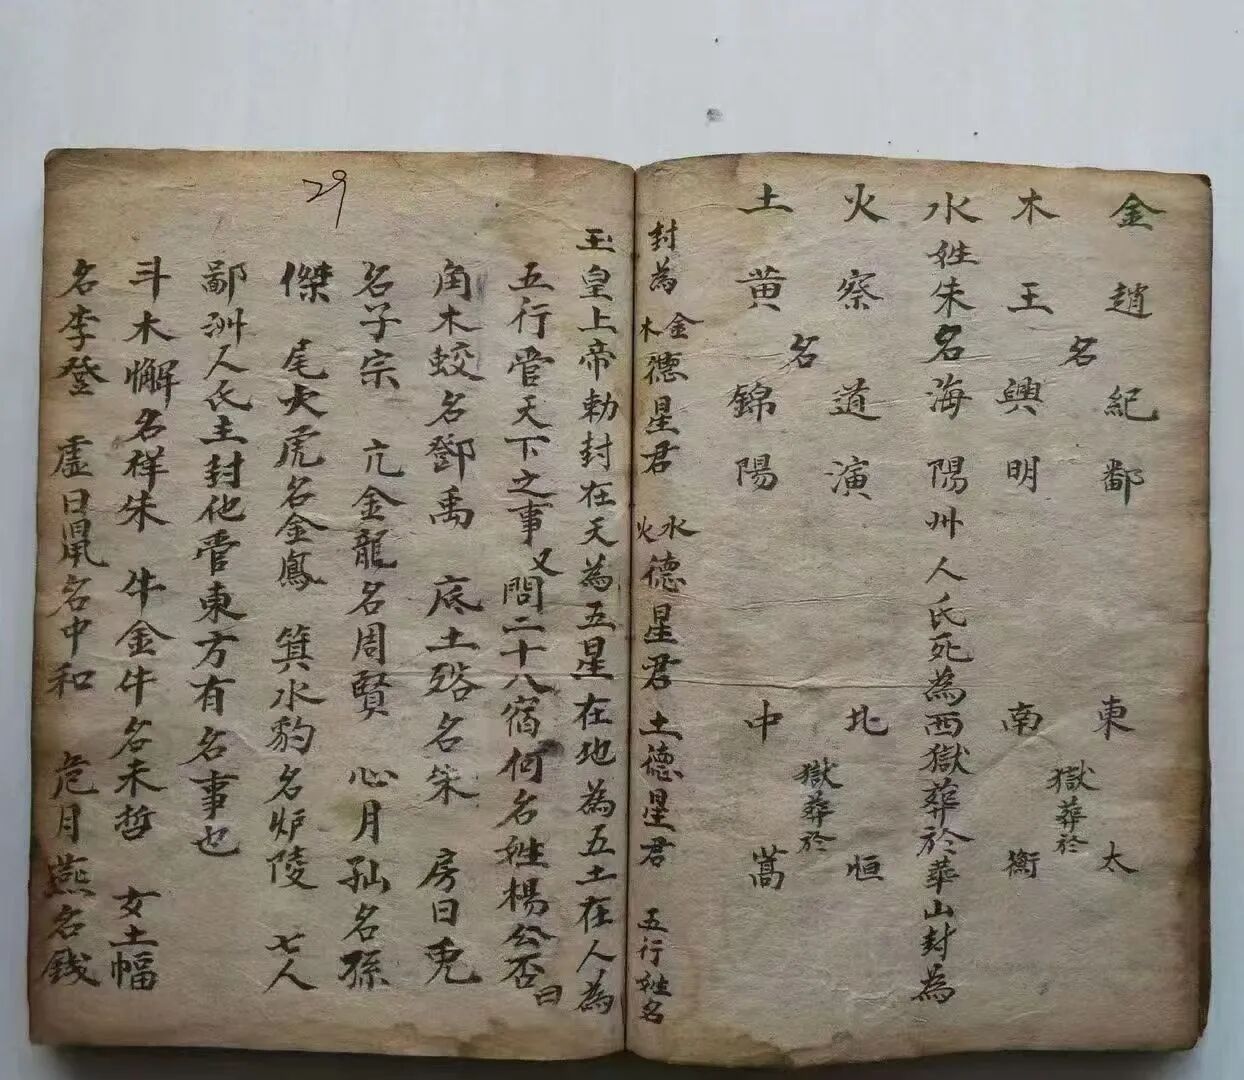 金 趙 紀 鄱 東 太
名 獄葬於
木 王 興 明 南 衡
水 姓朱名海陽州人氏死為西獄葬於華山封為
火 察 道 演 北 恒
名 獄葬於
土 黄 錦 陽 中 嵩
封為金木德星君 水火德星君 土德星君 五行姓名
玉皇上帝勅封在天為五星在地為五土在人為
五行管天下之事又問二十八宿何名姓楊公否曰
角木蛟名鄧禹 底土狢名朱 房日兎
名子宗 亢金龍名周賢 心月狐名孫
傑 尾火虎名金鳬 箕水豹名炉陵 七人
鄙洲人氏土封他管東方有名事也
斗木懈名祥朱 牛金牛名未哲 女土幅
名李登 虛日鼠名中和 危月燕名錢
29